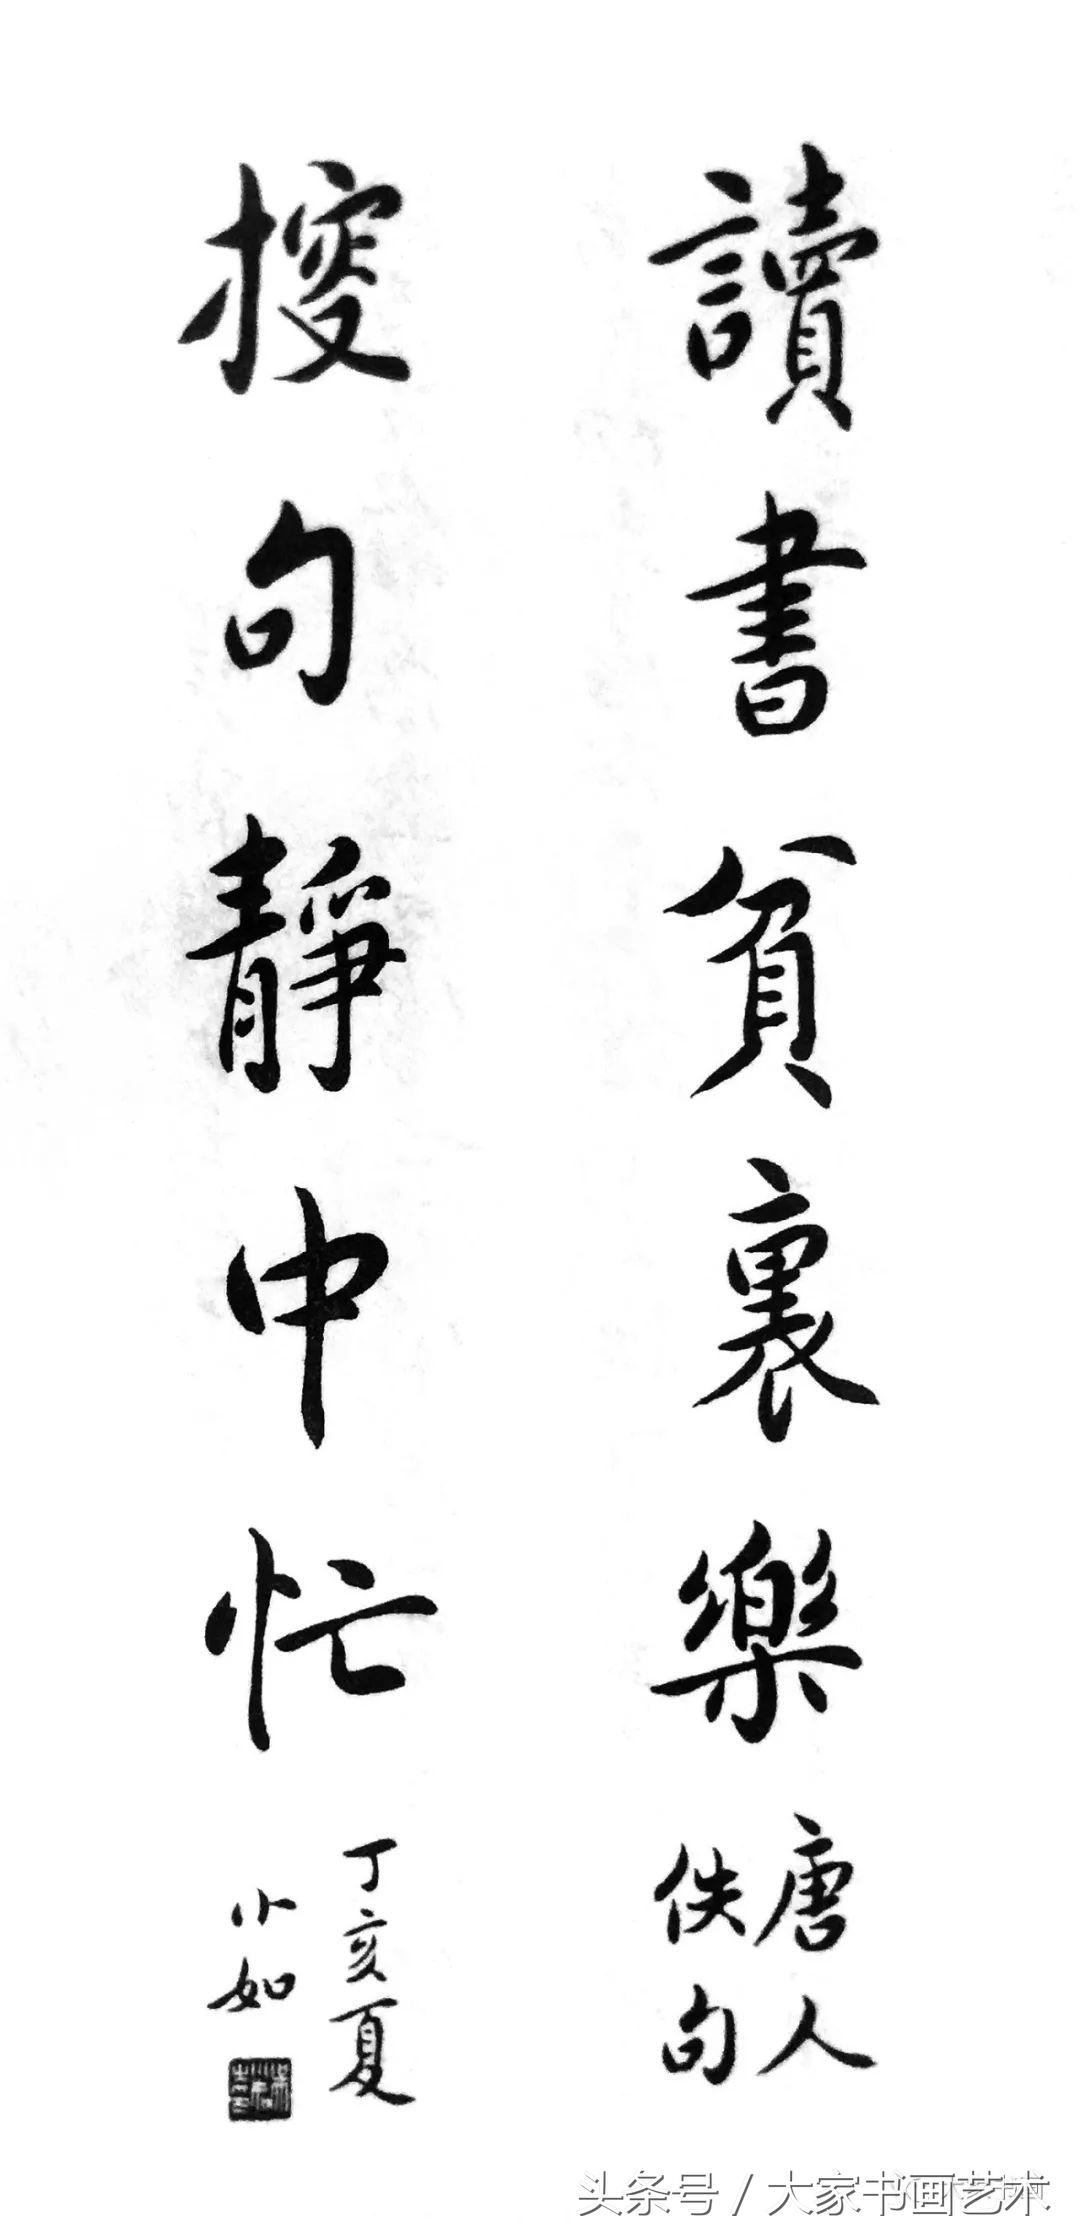 讀書貧裏樂
唐人
佚句
搜句靜中忙
丁亥夏
小如
头条号 / 大家书画艺术